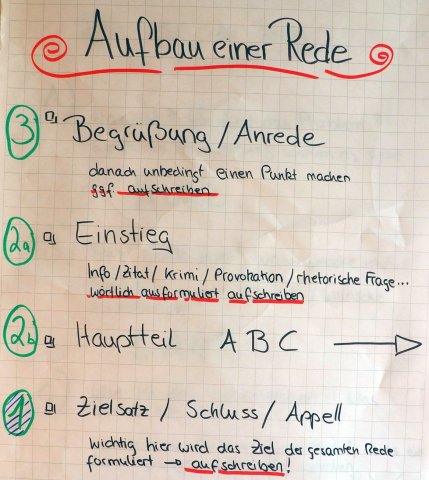 Aufbau einer Rede
3 Begrüßung / Anrede
danach unbedingt einen Punkt machen
ggf. aufschreiben
2a) Einstieg
Info / Zitat / Krimi / Provokation / rhetorische Frage...
wörtlich ausformuliert aufschreiben
2b Hauptteil A B C →
1 Zielsatz / Schluss / Appell
wichtig hier wird das Ziel der gesamten Rede
formuliert → aufschreiben!